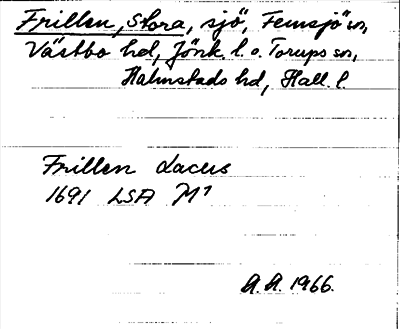 Frillen, Stora, sjö, Femsjö sn,
Västbo hd, Jönk. l. o. Torups sn,
Halmstads hd, Hall. l.
Frillen Lacus
1691 LSA M1
A.A. 1966.